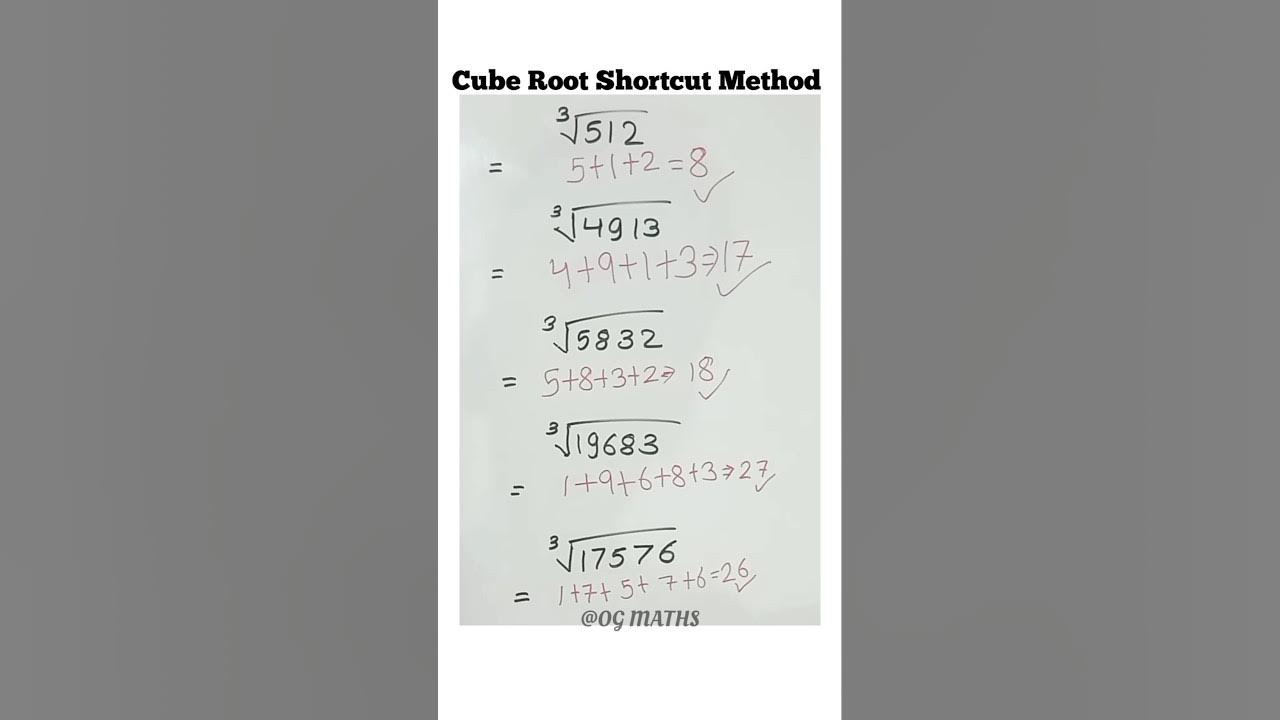 Cube Root Shortcut Method
∛512
= 5+1+2=8
∛4913
= 4+9+1+3⇒17
∛5832
= 5+8+3+2⇒ 18
∛19683
= 1+9+6+8+3⇒27
∛17576
= 1+7+5+7+6=26
@OG MATHS